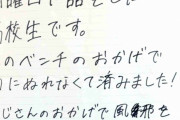 校生です。
のベンチのおかげで
にぬれなくて済みました!
じさんのおかげで風邪を